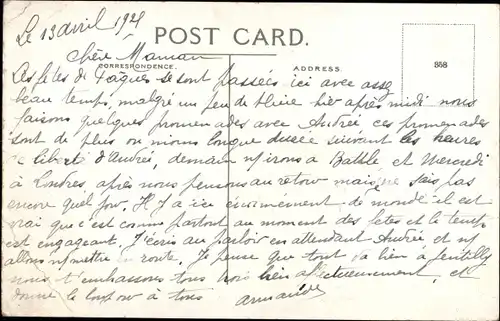 Le 13 avril 192
POST CARD.
Chère Maman
CORRESPONDENCE.
ADDRESS.
868
Les fêtes de Pâques se sont passées ici avec assez
beau temps, malgré un peu de pluie hier après midi nous
faisons quelques promenades avec Andrée ces promenades
sont de plus ou moins longue durée suivant les heures
de liberté d'Andrée, demain ns irons a Battle et Mercredi
à Londres, après nous pensons au retour mais je sais pas
encore quel jour. Il y a ici énormément de monde il est
vrai que c'est comme partout au moment des fêtes et le temps
est engageant. J'écris au parloir en attendant Andrée et ns
allons ns mettre en route. Je pense que tout va bien à
nous t'embrassons tous trois bien affectueusement, et
donne le bonjour à tous Armande